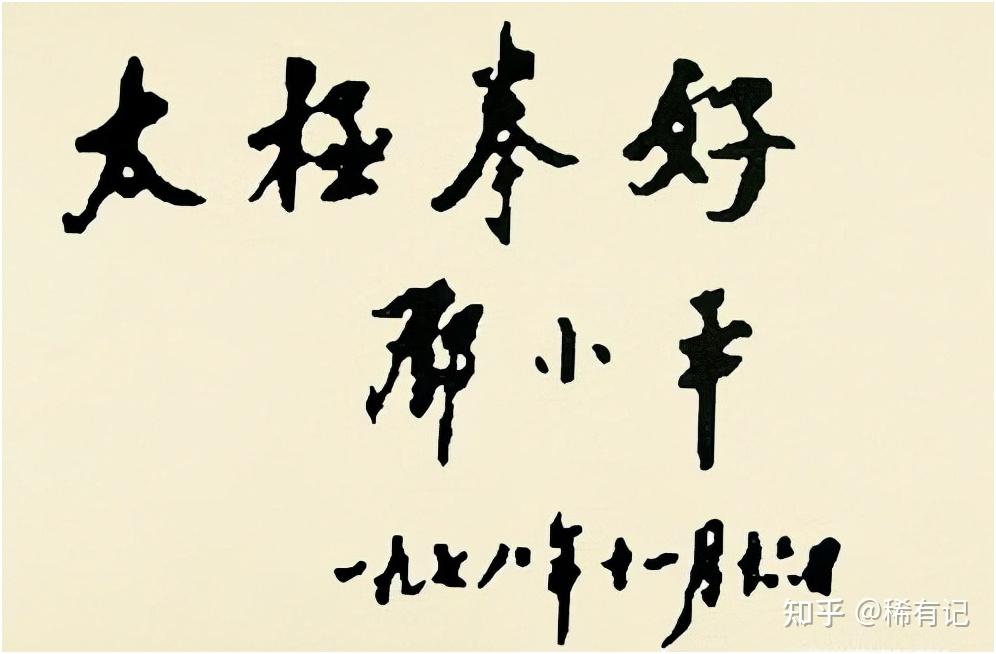 太极拳好
邓小平
一九七八年十一月十六日
知乎 @稀有记